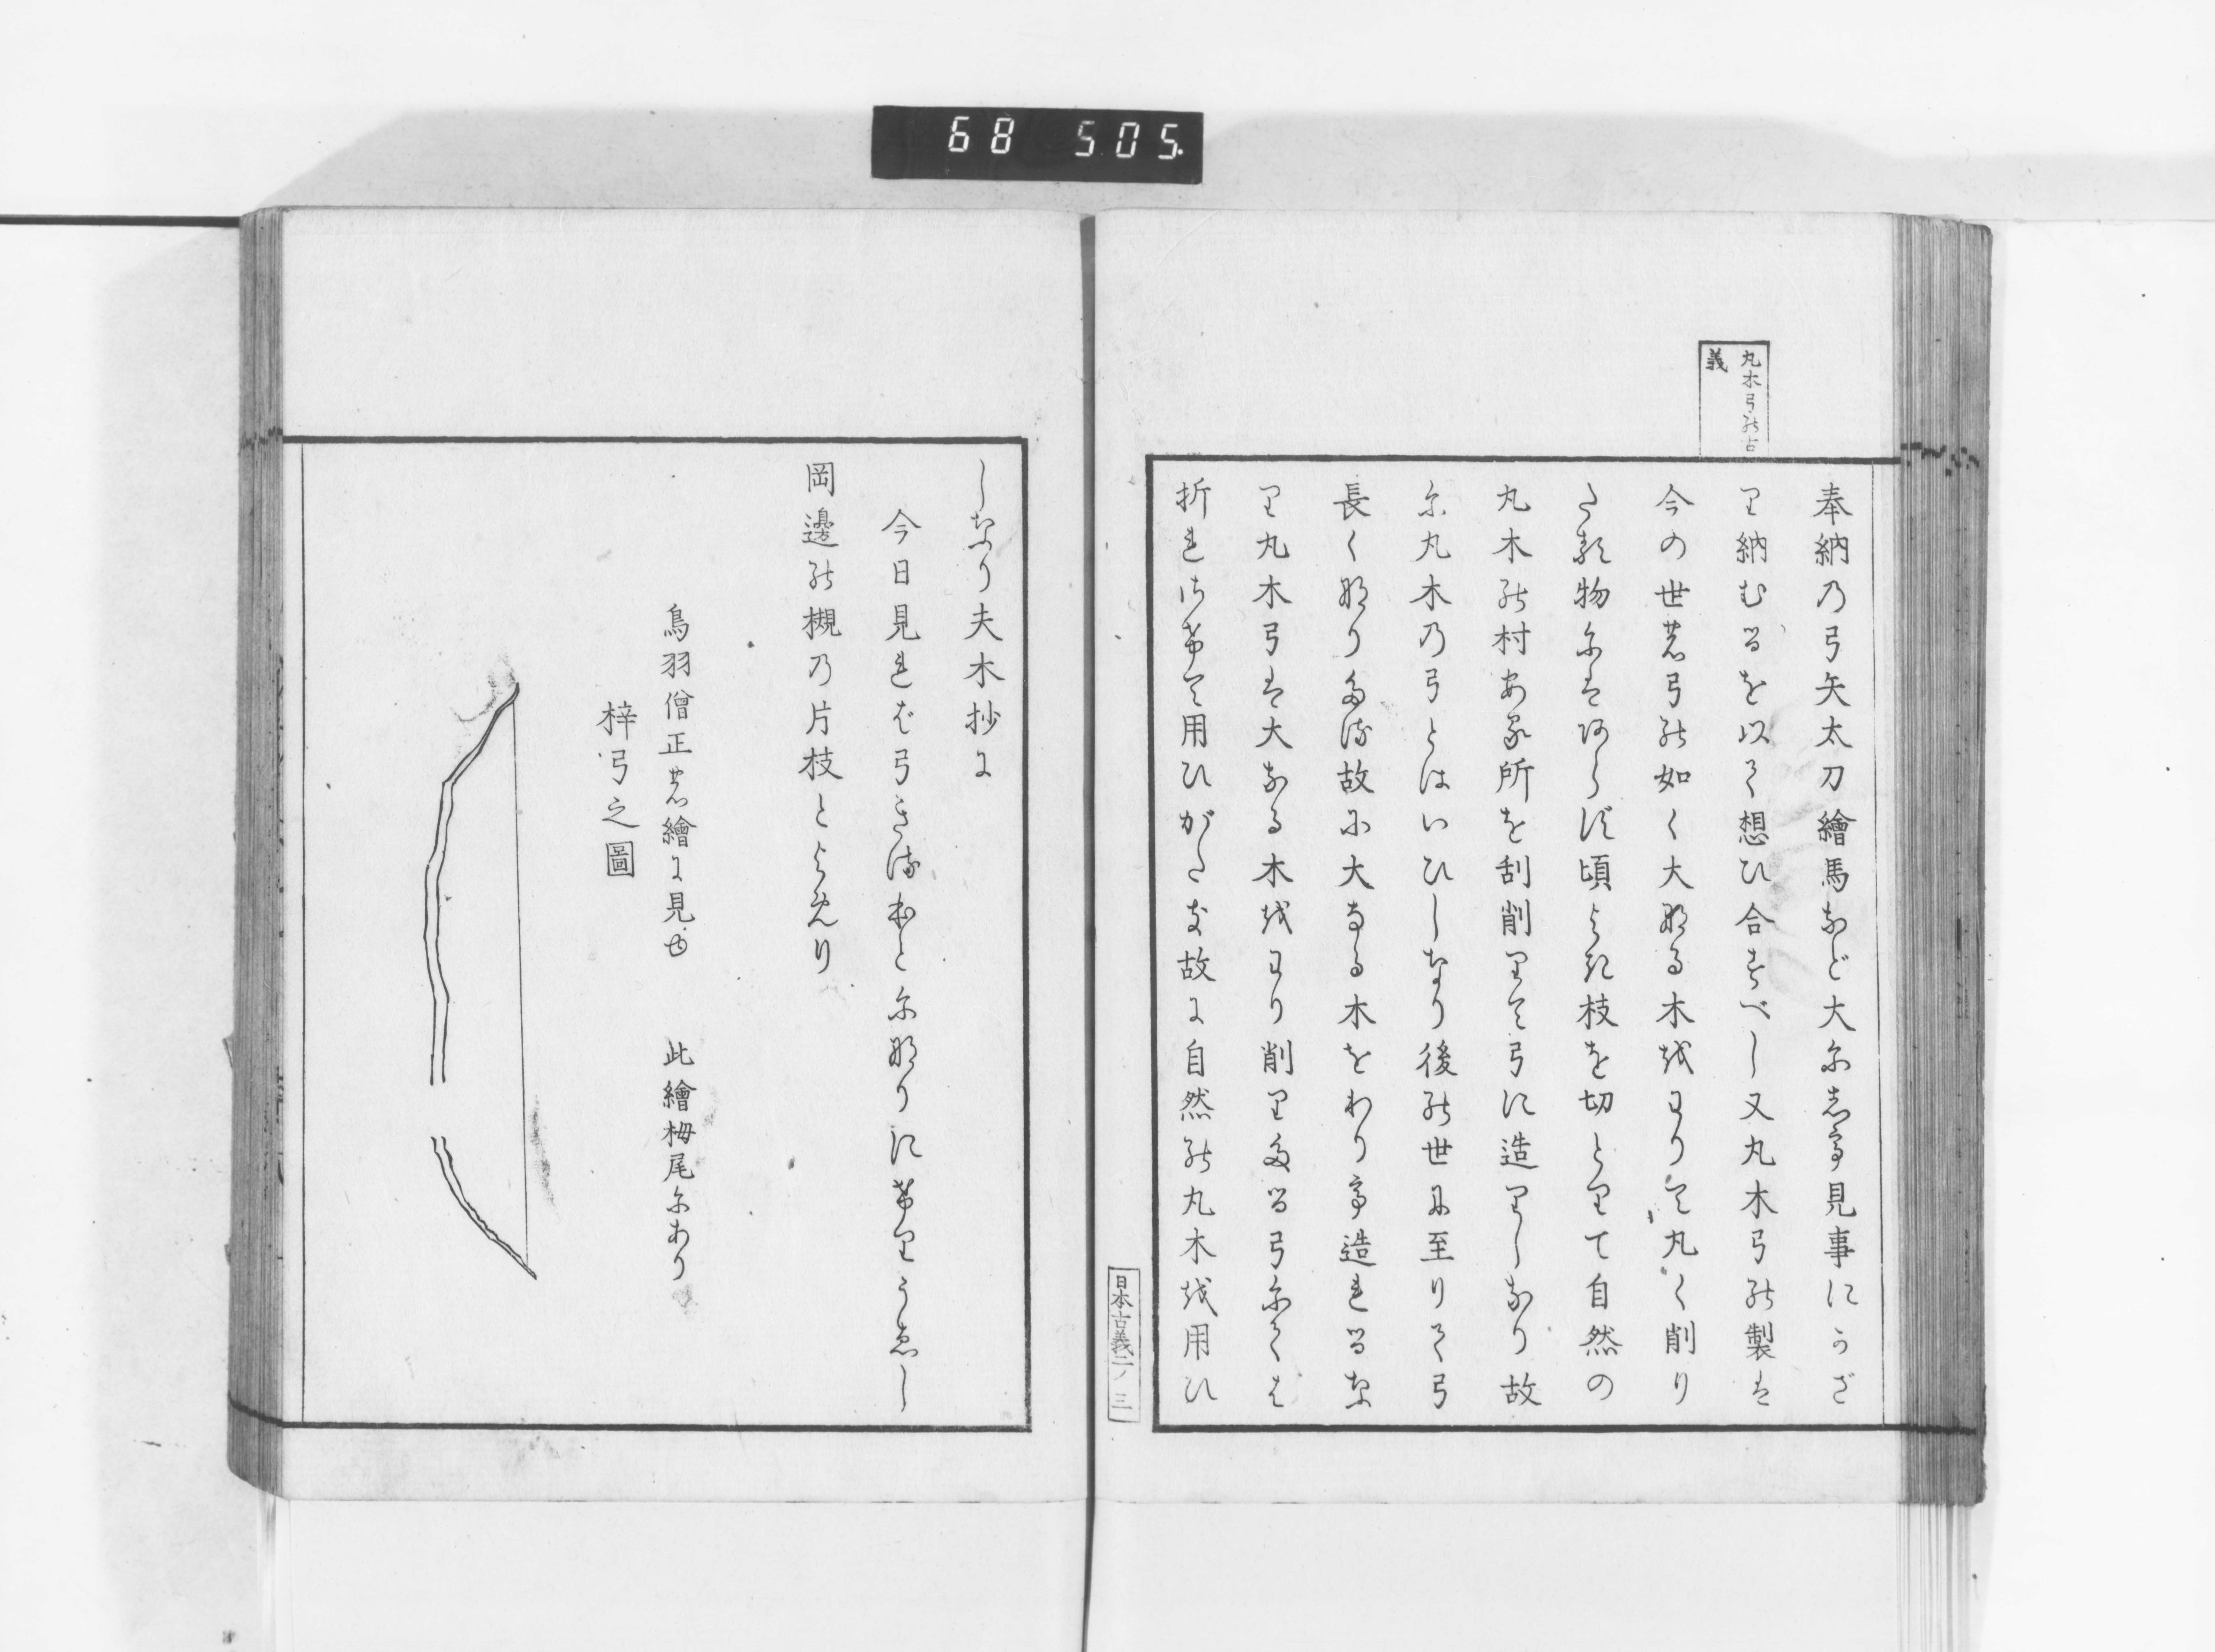 68 505.
丸木弓能古
義
奉納乃弓矢太刀繪馬などど大尓志て見事にうざ
り納むるを以て想ひ合すべし又丸木弓能製は
今の世の弓能如く大那る木越わりて丸く削り
たる物尓はあらず頃よき枝を切とりて自然の
丸木能村ある所を刮削りて弓に造りしなり故
尓丸木乃弓とはいひしなり後能世に至りて弓
長く那りたる故に大なる木をわりて造れるな
り丸木弓は大なる木越わり削りたる弓尓くは
折れはせて用ひがたき故に自然能丸木越用ひ
しなり夫木抄に
今日見れば弓きるほと尓那りにけりうゑし
岡邊能槻乃片枝とよめり
鳥羽僧正の繪に見ゆ 此繪栂尾尓あり
梓弓之圖
日本古義二ノ三